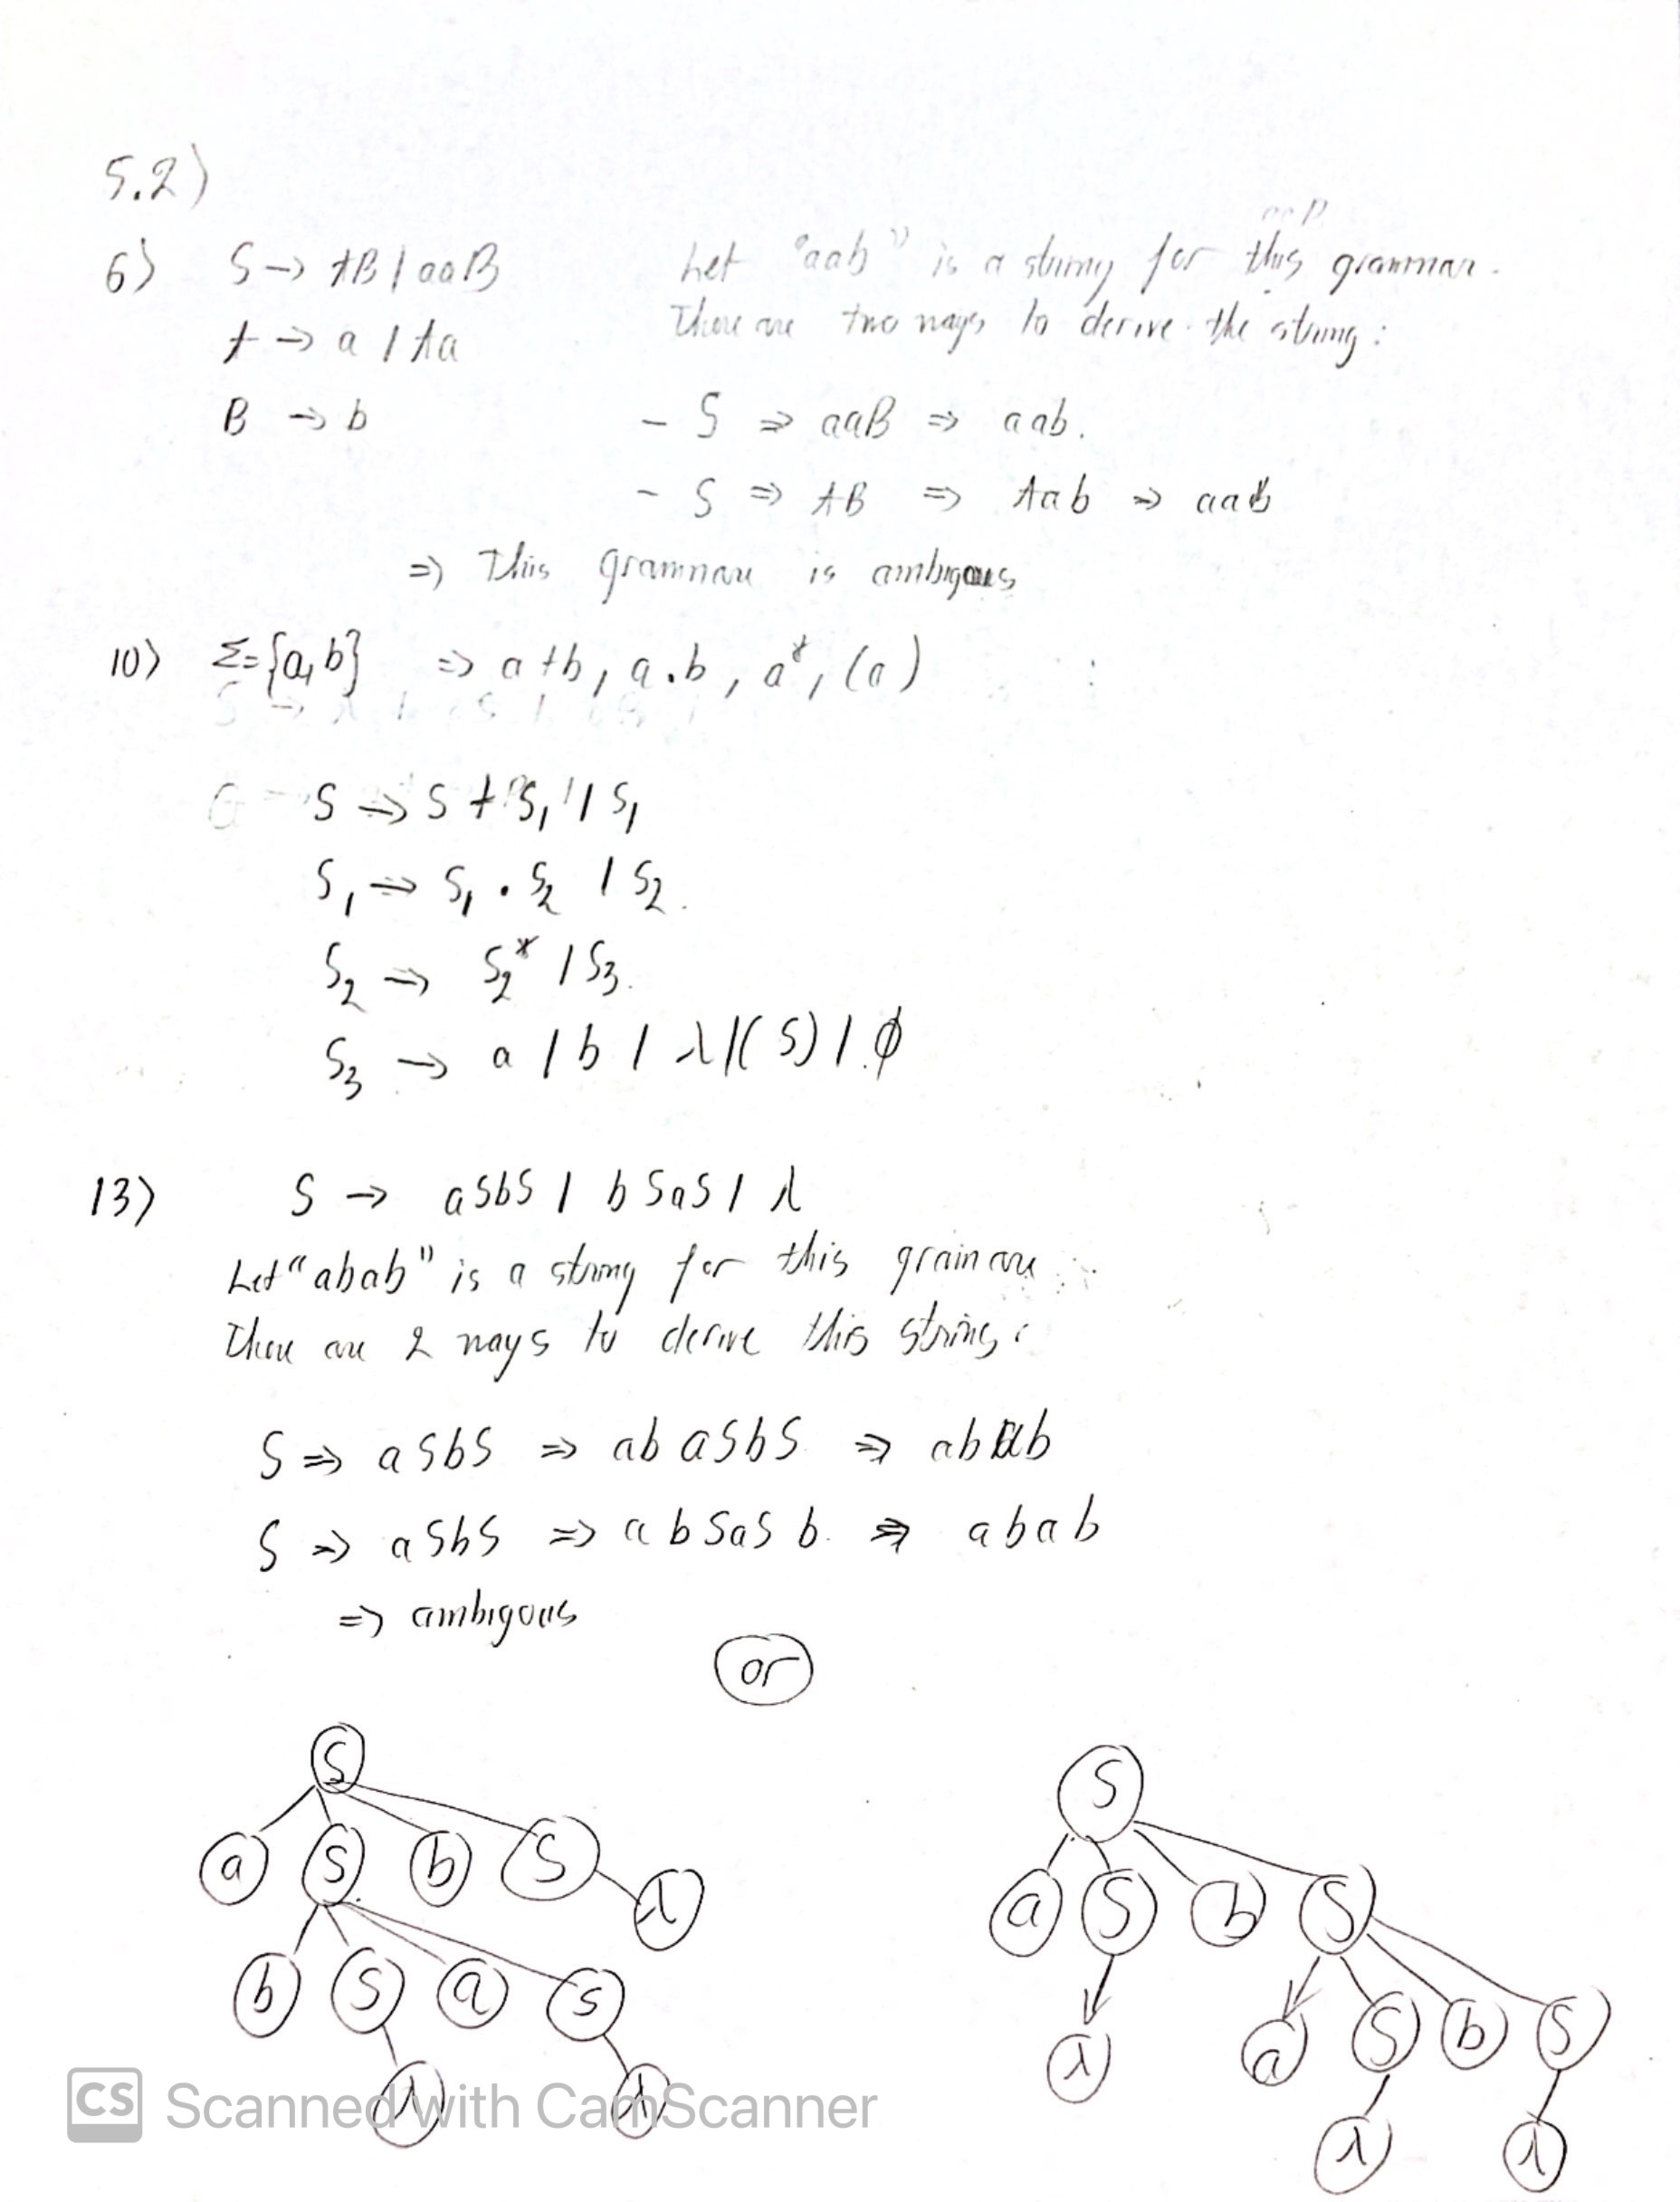 5.2)
6) S → AB | aaB
A → a | Aa
B → b
Let "aab" is a string for this grammar.
There are two ways to derive the string:
- S ⇒ aaB ⇒ aab.
- S ⇒ AB ⇒ Aab ⇒ aab
⇒ This grammar is ambigous
10) Σ={a,b} ⇒ a+b, a.b, a*, (a)
S ⇒ S + S₁ | S₁
S₁ ⇒ S₁ . S₂ | S₂.
S₂ ⇒ S₂* | S₃.
S₃ → a | b | λ | (S) | ϕ
13) S → aSbS | bSaS | λ
Let "abab" is a string for this grammar
There are 2 ways to derive this string:
S ⇒ aSbS ⇒ abaSbS ⇒ abab
S ⇒ aSbS ⇒ abSaSb. ⇒ abab
⇒ ambigous
or
S
a S b S
λ
b S a S
λ λ
S
a S b S
λ
a S b S
λ λ
CS Scanned with CamScanner